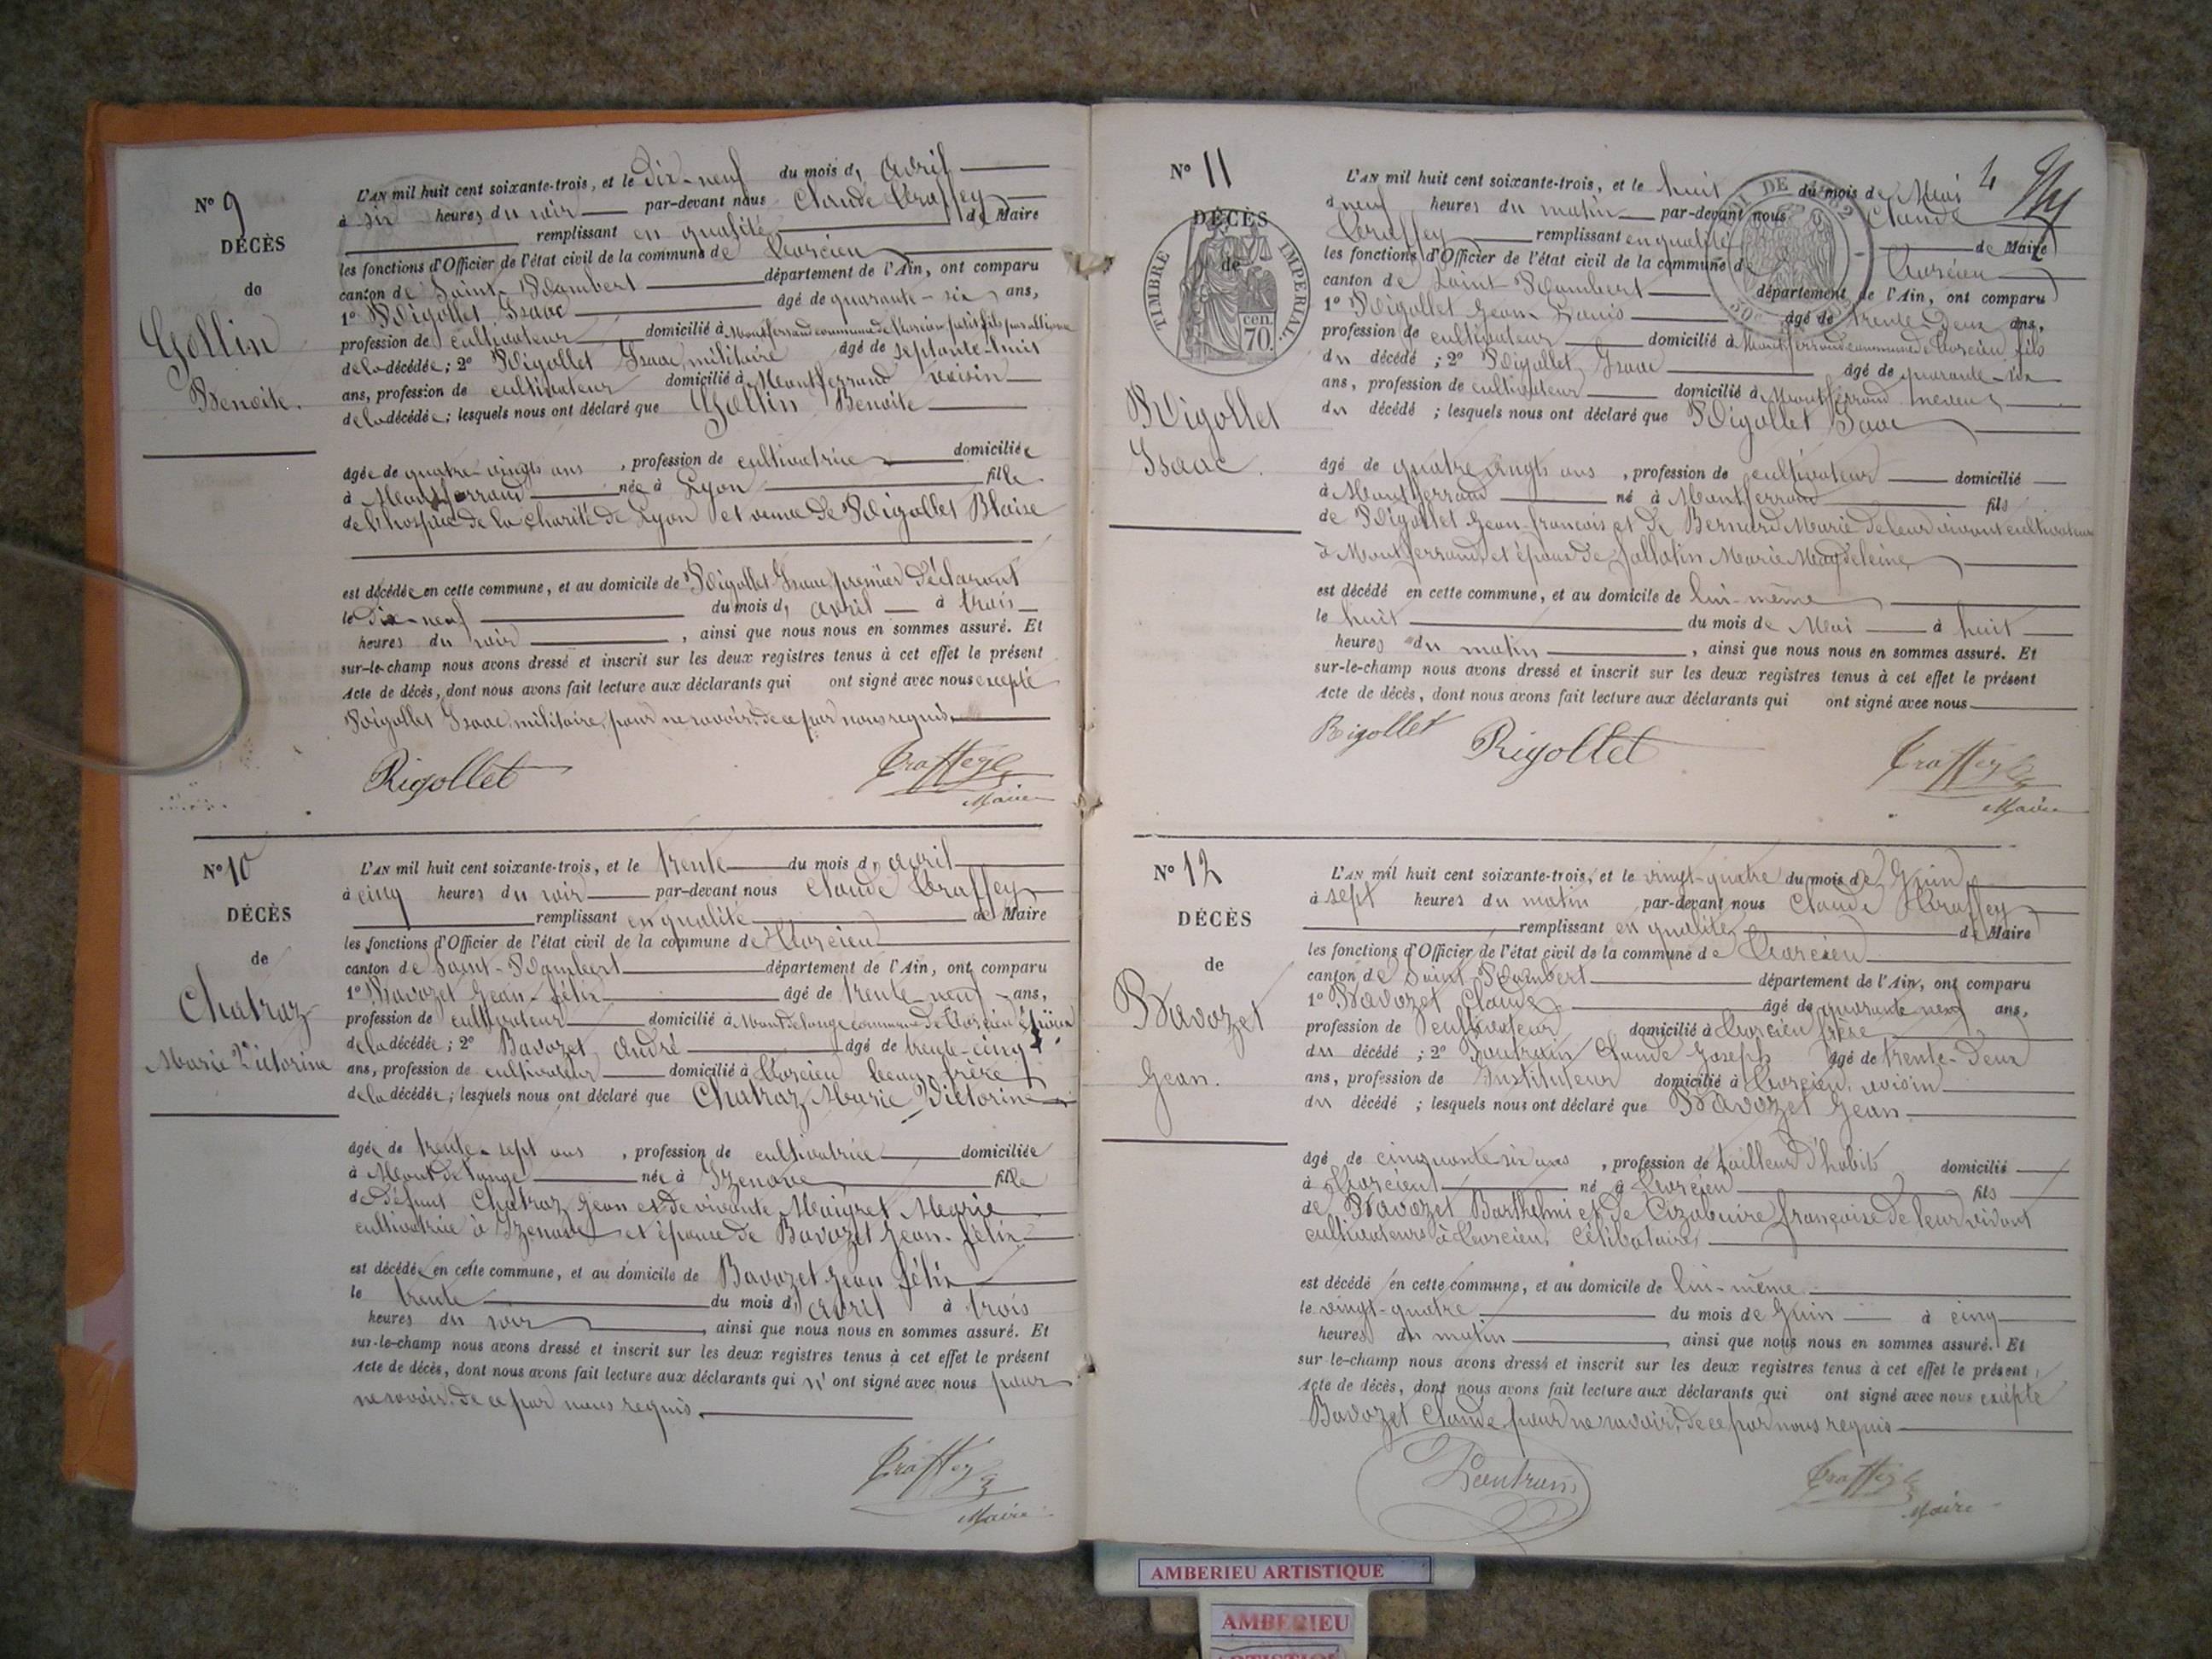 N° 9
DÉCÈS
de
Gollin
Benoite.
L'AN mil huit cent soixante-trois, et le dix-neuf du mois d' avril
à six heures du soir par-devant nous Claude Craffey
remplissant en qualité de Maire
les fonctions d'Officier de l'état civil de la commune de
canton de Saint-Rambert département de l'Ain, ont comparu
1° Rigollet Isaac âgé de quarante-six ans,
profession de cultivateur domicilié à Montferrand commune de petit fils par alliance
de la décédée; 2° Rigollet Isaac, militaire âgé de septante-huit
ans, profession de cultivateur domicilié à Montferrand voisin
de la décédée; lesquels nous ont déclaré que Gollin Benoite
âgée de quatre-vingts ans, profession de cultivatrice domiciliée
à Montferrand née à Lyon fille
de l'hospice de la charité de Lyon et veuve de Rigollet Blaise
est décédée en cette commune, et au domicile de Rigollet Isaac premier déclarant
le dix-neuf du mois d' avril à trois
heures du soir, ainsi que nous nous en sommes assuré. Et
sur-le-champ nous avons dressé et inscrit sur les deux registres tenus à cet effet le présent
Acte de décès, dont nous avons fait lecture aux déclarants qui ont signé avec nous excepté
Rigollet Isaac militaire, pour ne savoir, de ce par nous requis.
Rigollet
Maire
N° 10
DÉCÈS
de
Chatraz
Marie Victorine
L'AN mil huit cent soixante-trois, et le trente du mois d' avril
à cinq heures du soir par-devant nous Claude Craffey
remplissant en qualité de Maire
les fonctions d'Officier de l'état civil de la commune de
canton de Saint-Rambert département de l'Ain, ont comparu
1° Bavozet Jean-félix âgé de trente-neuf ans,
profession de cultivateur domicilié à Mont de lange commune de époux
de la décédée; 2° Bavozet André âgé de trente-cinq
ans, profession de cultivateur domicilié à beau-frère
de la décédée; lesquels nous ont déclaré que Chatraz Marie Victorine
âgée de trente-sept ans, profession de cultivatrice domiciliée
à Mont de lange née à Izenave fille
de défunt Chatraz Jean et de vivante Maigret Marie
cultivatrice à Izenave et épouse de Bavozet Jean-félix
est décédée en cette commune, et au domicile de Bavozet Jean félix
le trente du mois d' avril à trois
heures du soir, ainsi que nous nous en sommes assuré. Et
sur-le-champ nous avons dressé et inscrit sur les deux registres tenus à cet effet le présent
Acte de décès, dont nous avons fait lecture aux déclarants qui n'ont signé avec nous pour
ne savoir, de ce par nous requis.
Maire
N° 11
DÉCÈS
de
TIMBRE IMPÉRIAL
70 cen.
Rigollet
Isaac.
4
L'AN mil huit cent soixante-trois, et le huit du mois de Mai
à neuf heures du matin par-devant nous Claude
Craffey remplissant en qualité de Maire
les fonctions d'Officier de l'état civil de la commune de
canton de Saint-Rambert département de l'Ain, ont comparu
1° Rigollet Jean-Louis âgé de trente-deux ans,
profession de cultivateur domicilié à Montferrand commune de fils
du décédé; 2° Rigollet Isaac âgé de quarante-six
ans, profession de cultivateur domicilié à Montferrand neveu
du décédé; lesquels nous ont déclaré que Rigollet Isaac
âgé de quatre vingts ans, profession de cultivateur domicilié
à Montferrand né à Montferrand fils
de Rigollet Jean-françois et de Bernard Marie de leur vivant cultivateurs
à Montferrand, et époux de Marie Magdeleine
est décédé en cette commune, et au domicile de lui-même
le huit du mois de Mai à huit
heures du matin, ainsi que nous nous en sommes assuré. Et
sur-le-champ nous avons dressé et inscrit sur les deux registres tenus à cet effet le présent
Acte de décès, dont nous avons fait lecture aux déclarants qui ont signé avec nous
Rigollet Rigollet
Maire
N° 12
DÉCÈS
de
Bavozet
Jean.
L'AN mil huit cent soixante-trois, et le vingt-quatre du mois de Juin
à sept heures du matin par-devant nous Claude Craffey
remplissant en qualité de Maire
les fonctions d'Officier de l'état civil de la commune de
canton de Saint-Rambert département de l'Ain, ont comparu
1° Bavozet Claude âgé de quarante neuf ans,
profession de cultivateur domicilié à frère
du décédé; 2° Claude Joseph âgé de trente-deux
ans, profession de Instituteur domicilié à voisin
du décédé; lesquels nous ont déclaré que Bavozet Jean
âgé de cinquante-six ans, profession de tailleur d'habits domicilié
à né à fils
de Bavozet Barthelmi et de françoise de leur vivant
cultivateurs à célibataire
est décédé en cette commune, et au domicile de lui-même
le vingt-quatre du mois de Juin à cinq
heures du matin, ainsi que nous nous en sommes assuré. Et
sur-le-champ nous avons dressé et inscrit sur les deux registres tenus à cet effet le présent
Acte de décès, dont nous avons fait lecture aux déclarants qui ont signé avec nous excepté
Bavozet Claude pour ne savoir, de ce par nous requis
Maire
AMBERIEU ARTISTIQUE
AMBERIEU
ARTISTIQUE